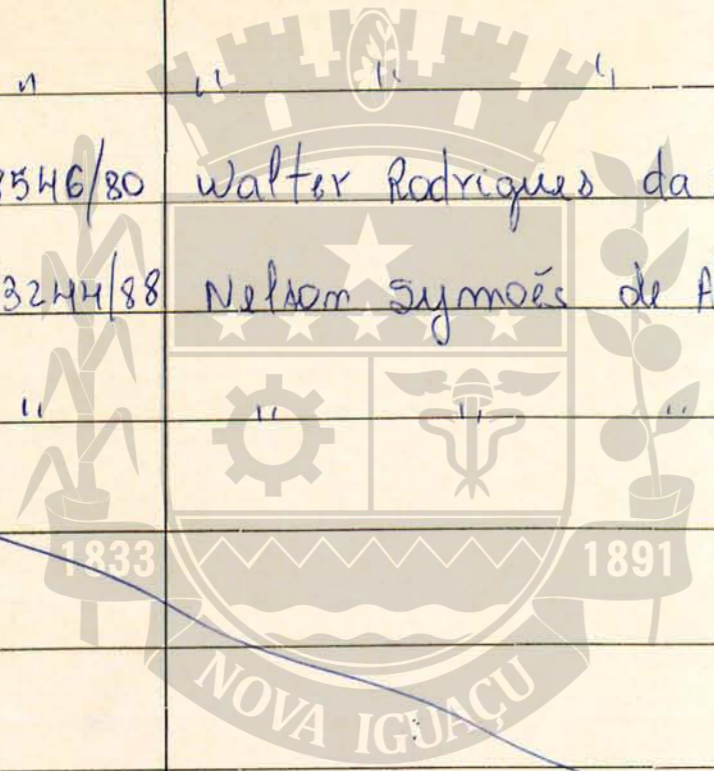 " " " "
8546/80 Walter Rodrigues da
3244/88 Nelson Symoẽs de A
" " " "
1833 1891
NOVA IGUAÇU